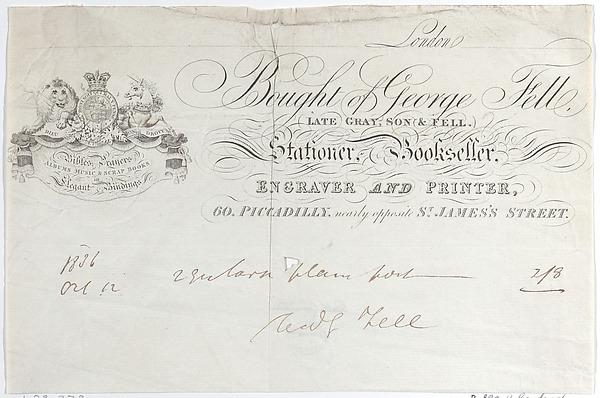 London
Bought of George Fell.
LATE GRAY, SON & FELL,
Stationer, Bookseller,
ENGRAVER AND PRINTER,
60, PICCADILLY, nearly opposite ST. JAMES'S STREET.
DIEU ET MON DROIT
Bibles, Prayers
ALBUMS MUSIC & SCRAP BOOKS
in
Elegant Bindings
1836
Oct 12
2 plain post 2/3
Fell